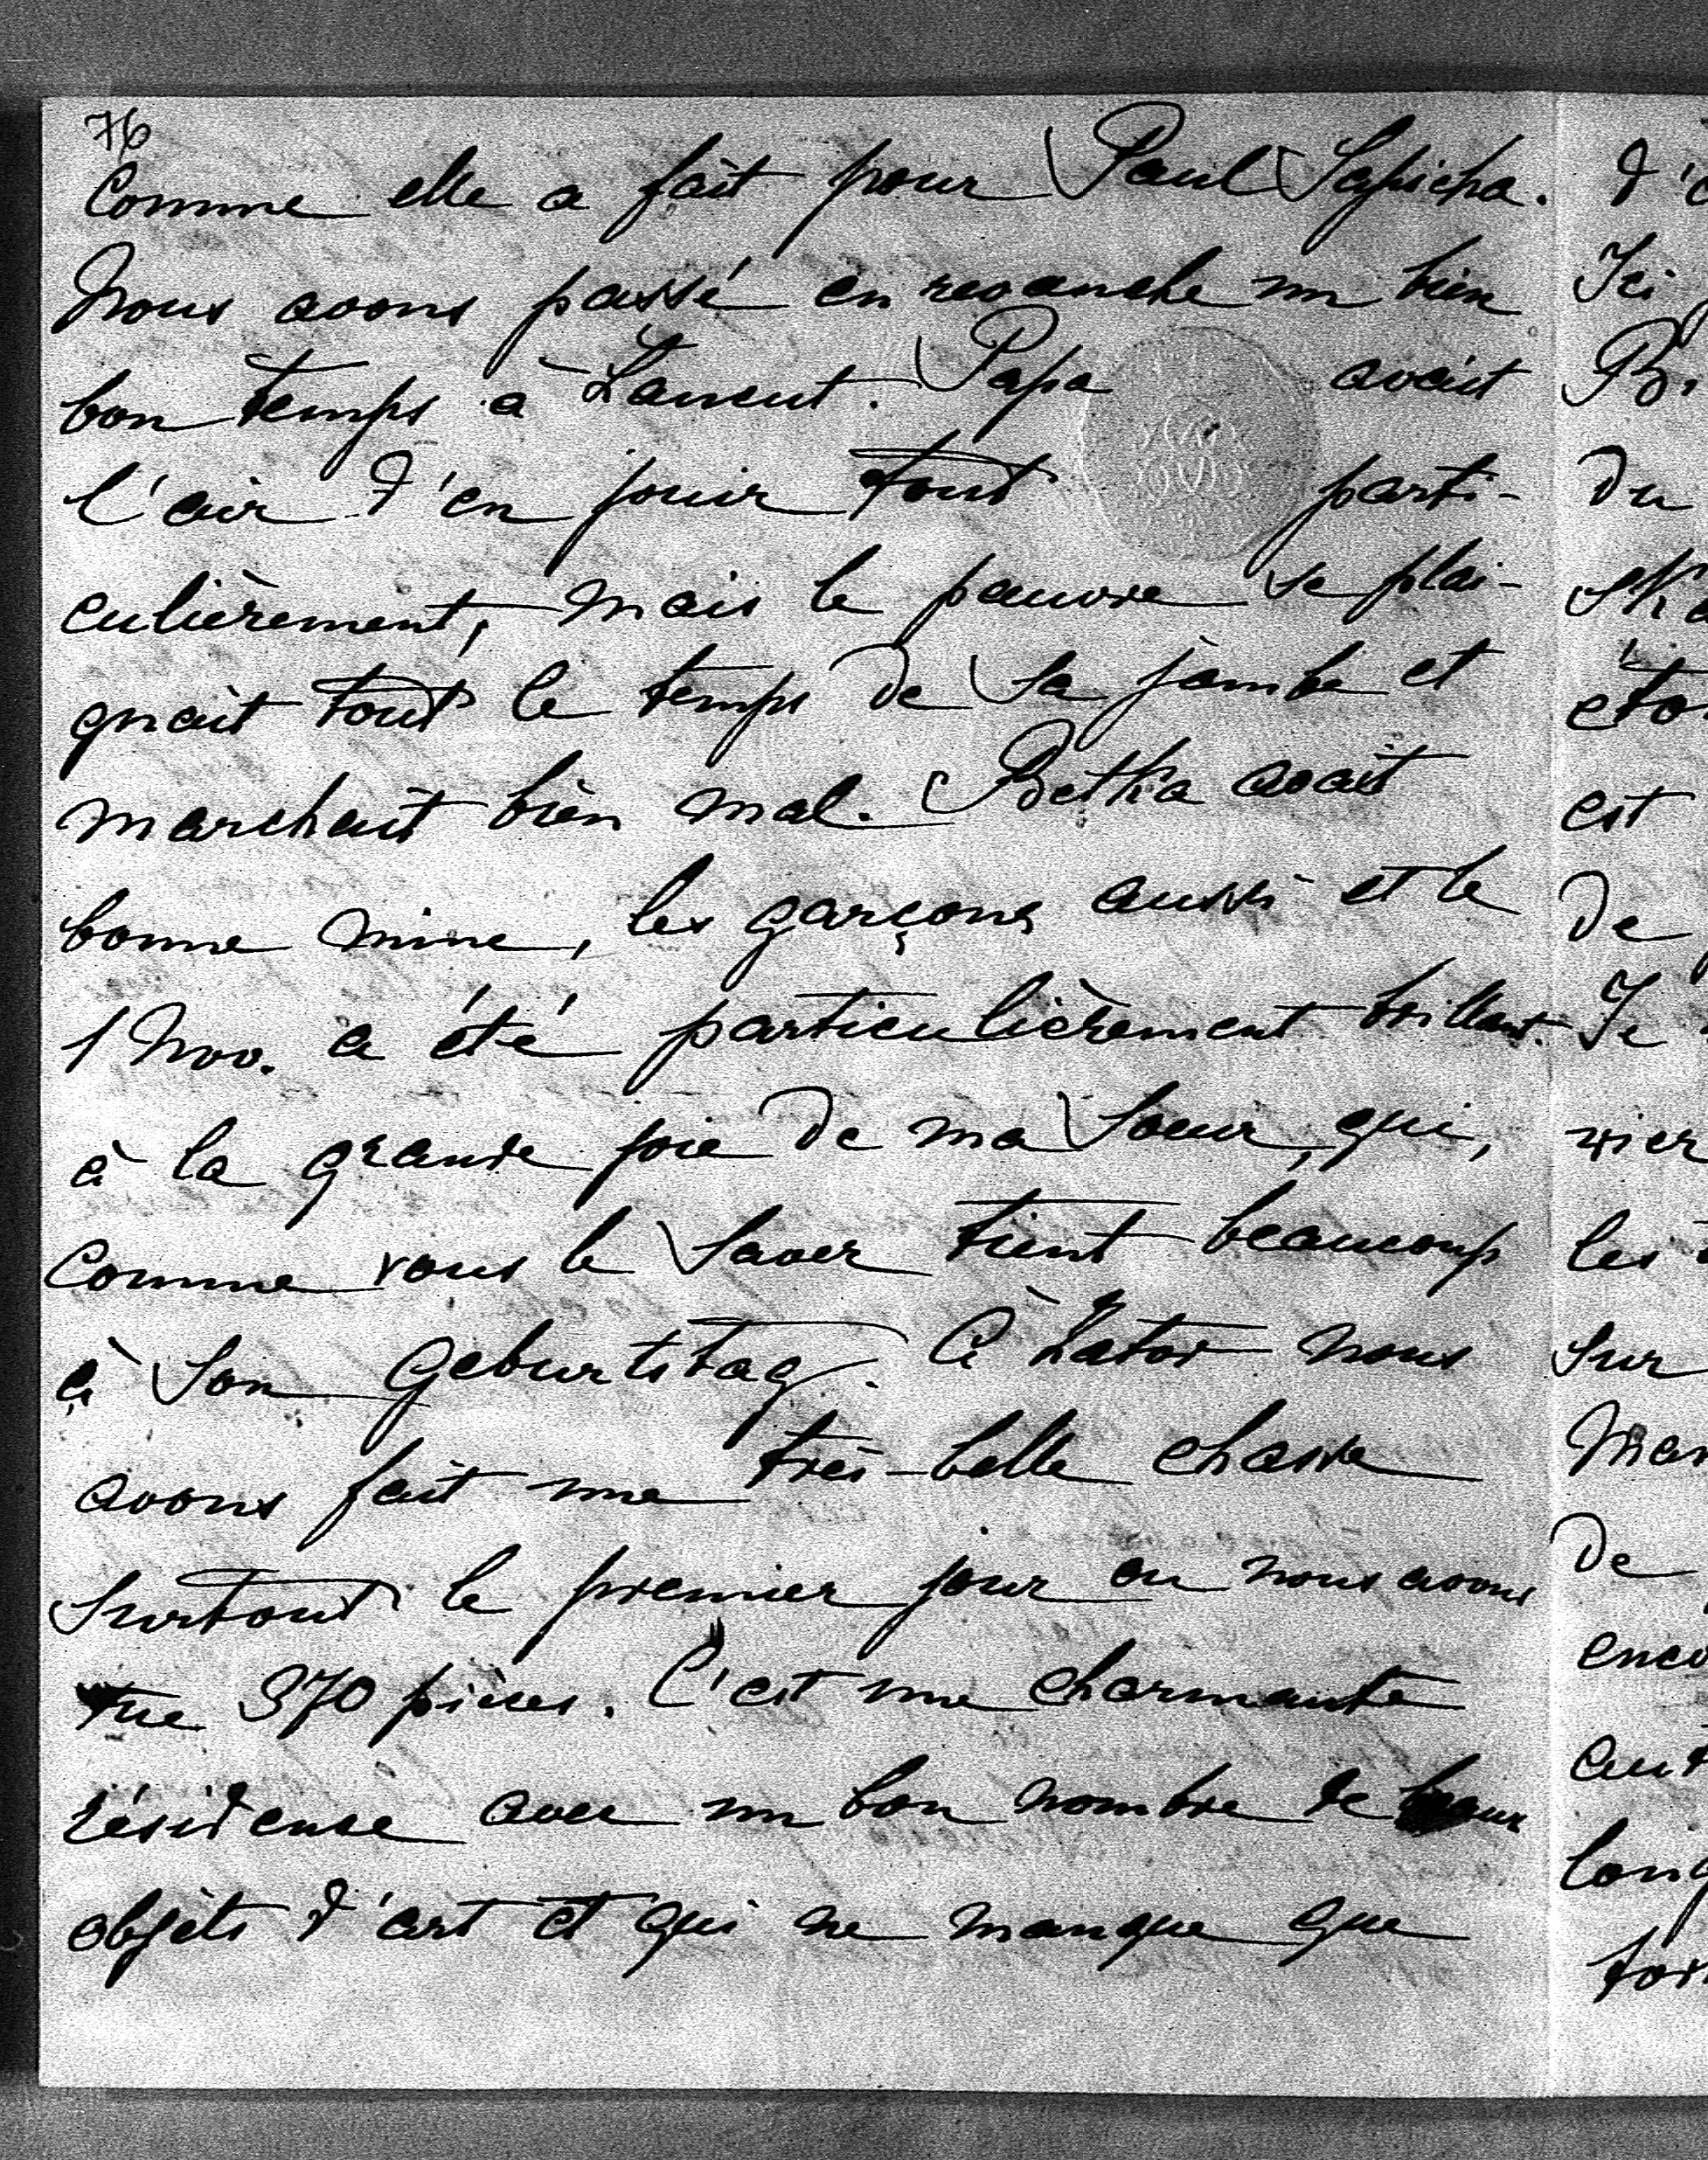 76
Comme elle a fait pour Paul Sapieha.
Nous avons passé en revanche un bien
bon temps à Lancut. Papa avait
l'air d'en jouir tout parti-
culièrement, mais le pauvre se plai-
gnait tout le temps de sa jambe et
marchait bien mal. Betka avait
bonne mine, les garçons aussi et le
1 Nov. a été particulièrement brillant.
à la grande joie de ma Soeur, qui,
comme vous le savez tient beaucoup
à son Geburtstag. À Zator nous
avons fait une très-belle chasse
surtout le premier jour ou nous avons
tue 370 pièces. C'est une charmante
résidence avec un bon nombre de beaux
objèts d'art et qui ne manque que
d'
Ici
B
du
ska
éto
est
de
Je
vier
les
sur
Mar
de
enco
aut
long
for